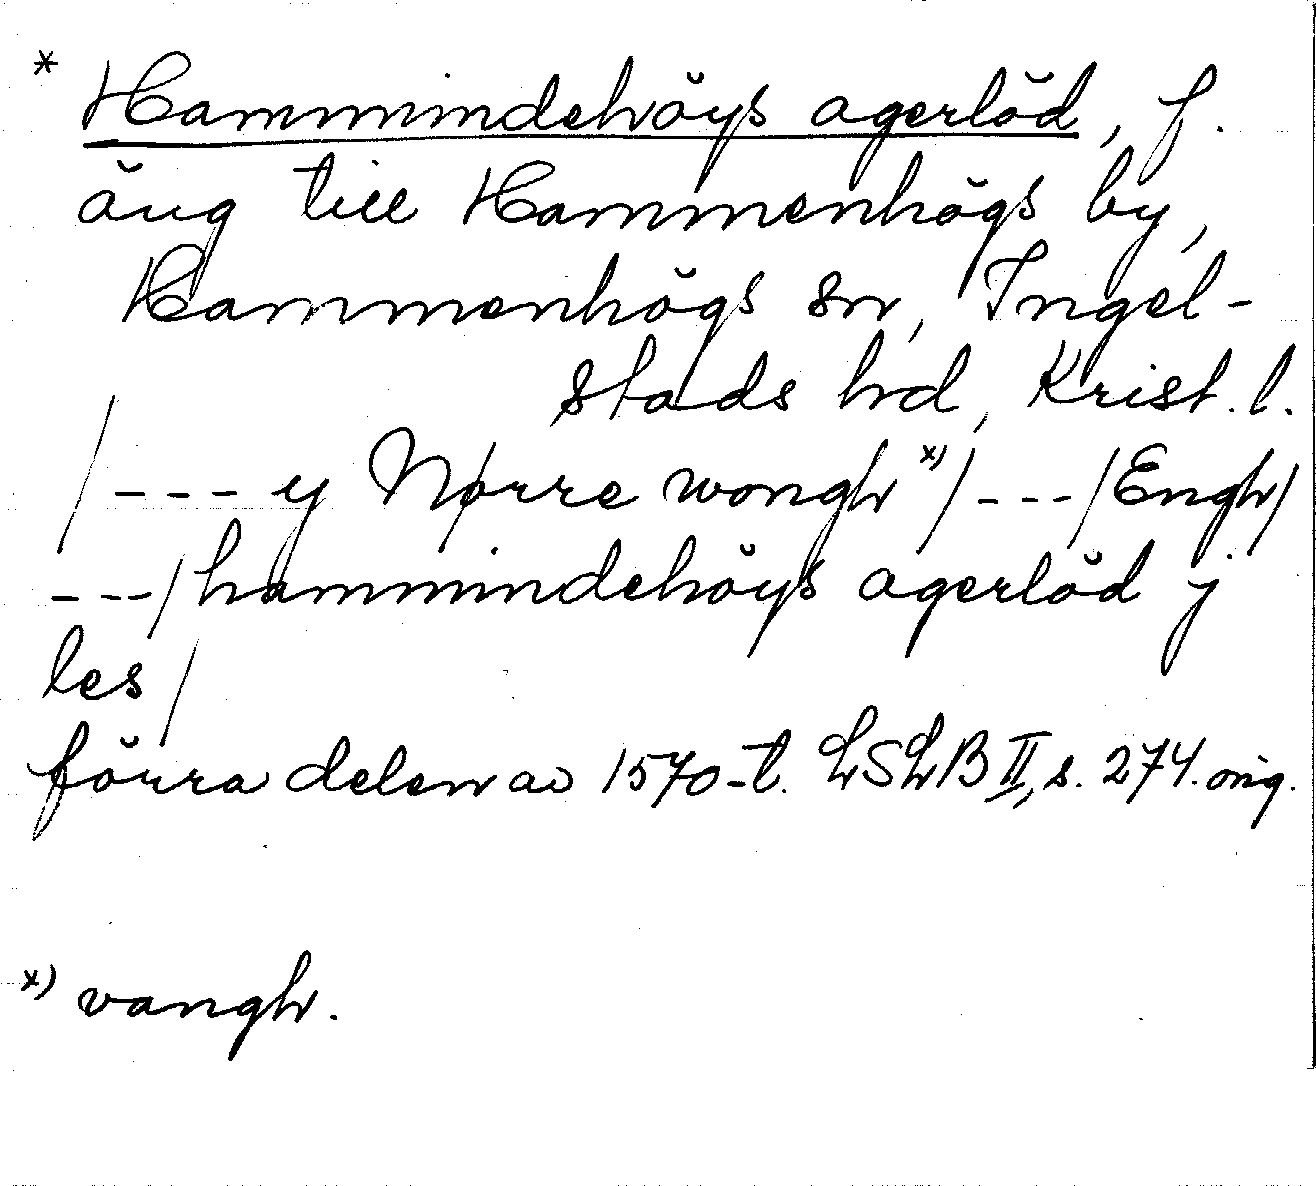 * Hammindehöys agerlöd, f.
äng till Hammenhögs by,
Hammenhögs sn, Ingel-
stads hd, Krist. l.
/--- y Nørre wongh x)/---/Engh/
---/hammindehöys agerlöd j
les/
förra delen av 1570-t. LSLB II, s. 274. orig.
x) vangh.